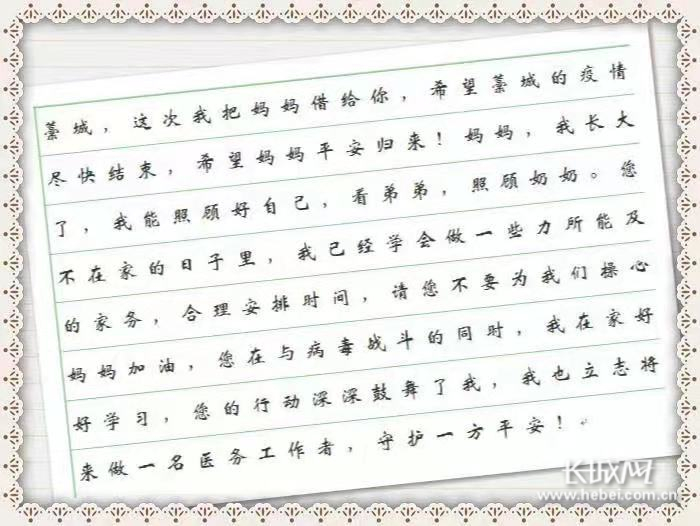 藁城，这次我把妈妈借给你，希望藁城的疫情
尽快结束，希望妈妈平安归来！妈妈，我长大
了，我能照顾好自己，看弟弟，照顾奶奶。您
不在家的日子里，我已经学会做一些力所能及
的家务，合理安排时间，请您不要为我们操心
妈妈加油，您在与病毒战斗的同时，我在家好
好学习，您的行动深深鼓舞了我，我也立志将
来做一名医务工作者，守护一方平安！
长城网
www.hebei.com.cn